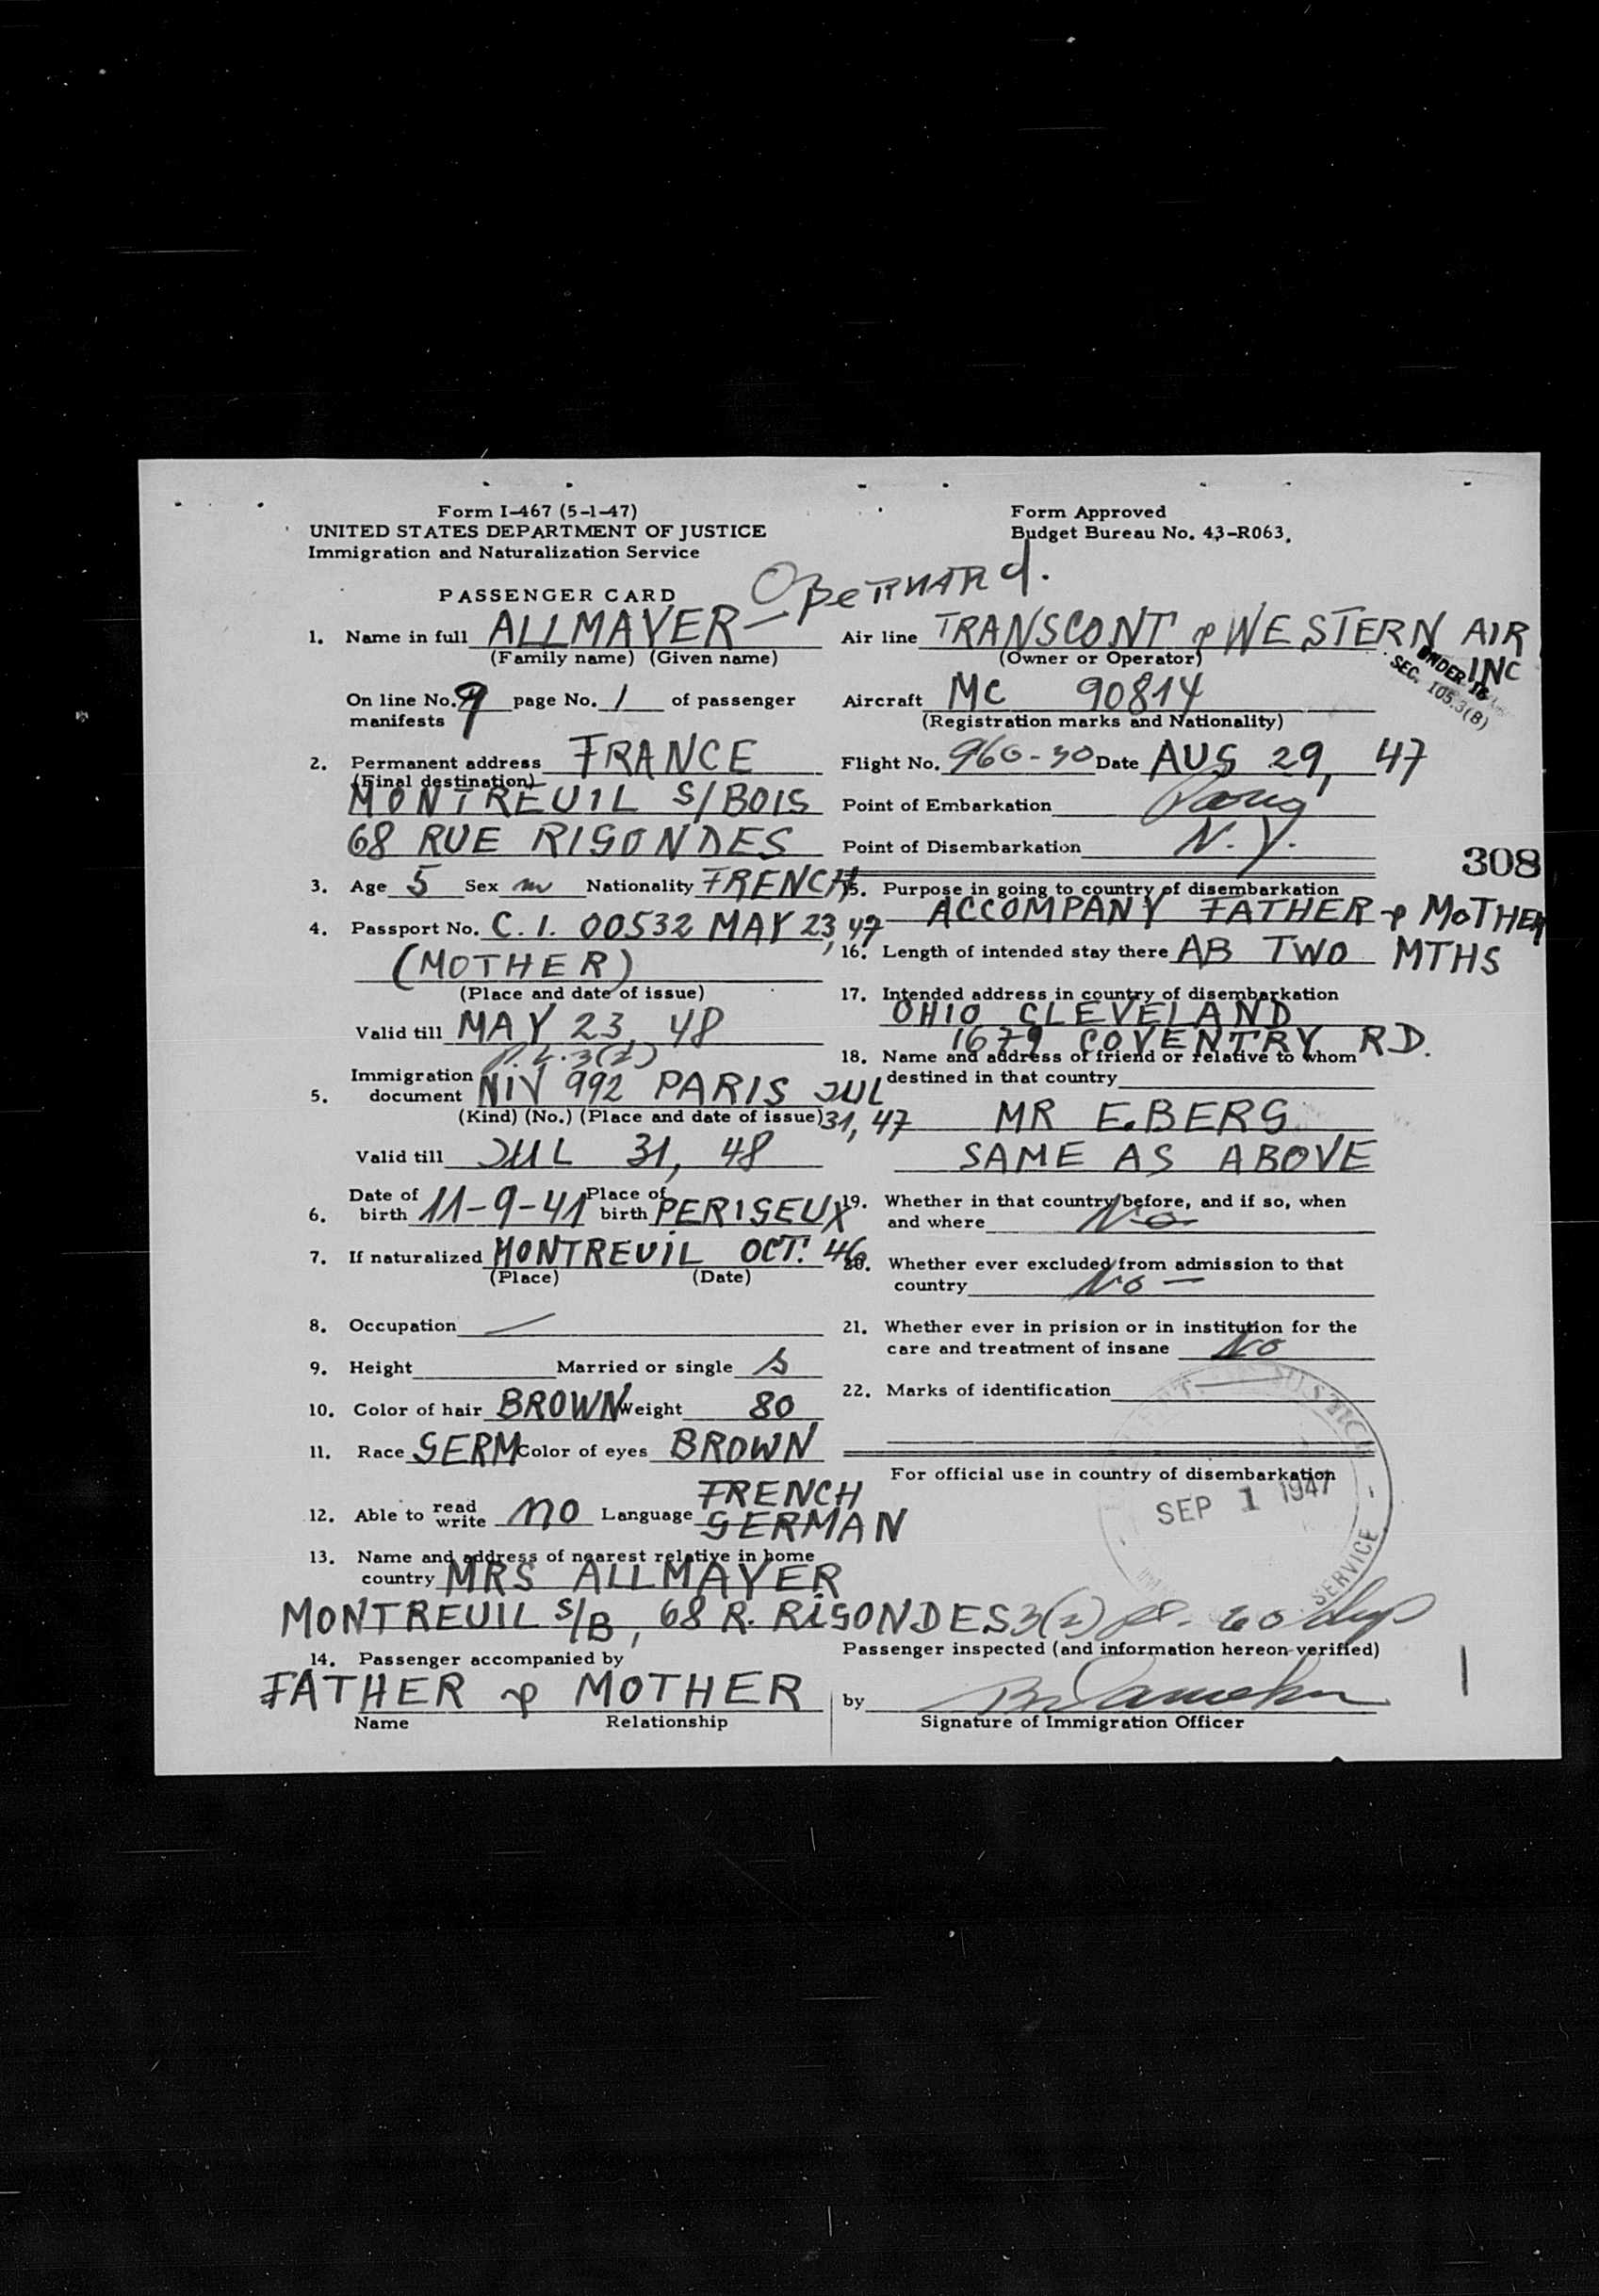 Form I-467 (5-1-47)
UNITED STATES DEPARTMENT OF JUSTICE
Immigration and Naturalization Service
Form Approved
Budget Bureau No. 43-R063.
PASSENGER CARD
Bernard.
1. Name in full ALLMAYER
(Family name) (Given name)
On line No. 9 page No. 1 of passenger
manifests
2. Permanent address FRANCE
(Final destination)
MONTREUIL S/BOIS
68 RUE RIGONDES
3. Age 5 Sex m Nationality FRENCH
4. Passport No. C.I. 00532 MAY 23, 47
(MOTHER)
(Place and date of issue)
Valid till MAY 23, 48
3(2)
5. Immigration document NIV 992 PARIS JUL 31, 47
(Kind) (No.) (Place and date of issue)
Valid till JUL 31, 48
6. Date of birth 11-9-41 Place of birth PERIGEUX
7. If naturalized MONTREUIL OCT. 46
(Place) (Date)
8. Occupation —
9. Height Married or single S
10. Color of hair BROWN Weight 80
11. Race GERM Color of eyes BROWN
12. Able to read write no Language FRENCH
GERMAN
13. Name and address of nearest relative in home
country MRS ALLMAYER
MONTREUIL S/B, 68 R. RIGONDES
14. Passenger accompanied by
FATHER & MOTHER
Name Relationship
Air line TRANSCONT & WESTERN AIR
INC
(Owner or Operator)
UNDER 16
SEC. 105.3(B)
Aircraft MC 90814
(Registration marks and Nationality)
Flight No. 960-30 Date AUG 29, 47
Point of Embarkation Paris
Point of Disembarkation N.Y.
308
15. Purpose in going to country of disembarkation
ACCOMPANY FATHER & MOTHER
16. Length of intended stay there AB TWO MTHS
17. Intended address in country of disembarkation
OHIO CLEVELAND
1679 COVENTRY RD.
18. Name and address of friend or relative to whom
destined in that country
MR E. BERG
SAME AS ABOVE
19. Whether in that country before, and if so, when
and where No
20. Whether ever excluded from admission to that
country No —
21. Whether ever in prision or in institution for the
care and treatment of insane No
22. Marks of identification
For official use in country of disembarkation
SEP 1 1947
SERVICE
3(2) 60 dys
Passenger inspected (and information hereon verified)
by
Signature of Immigration Officer